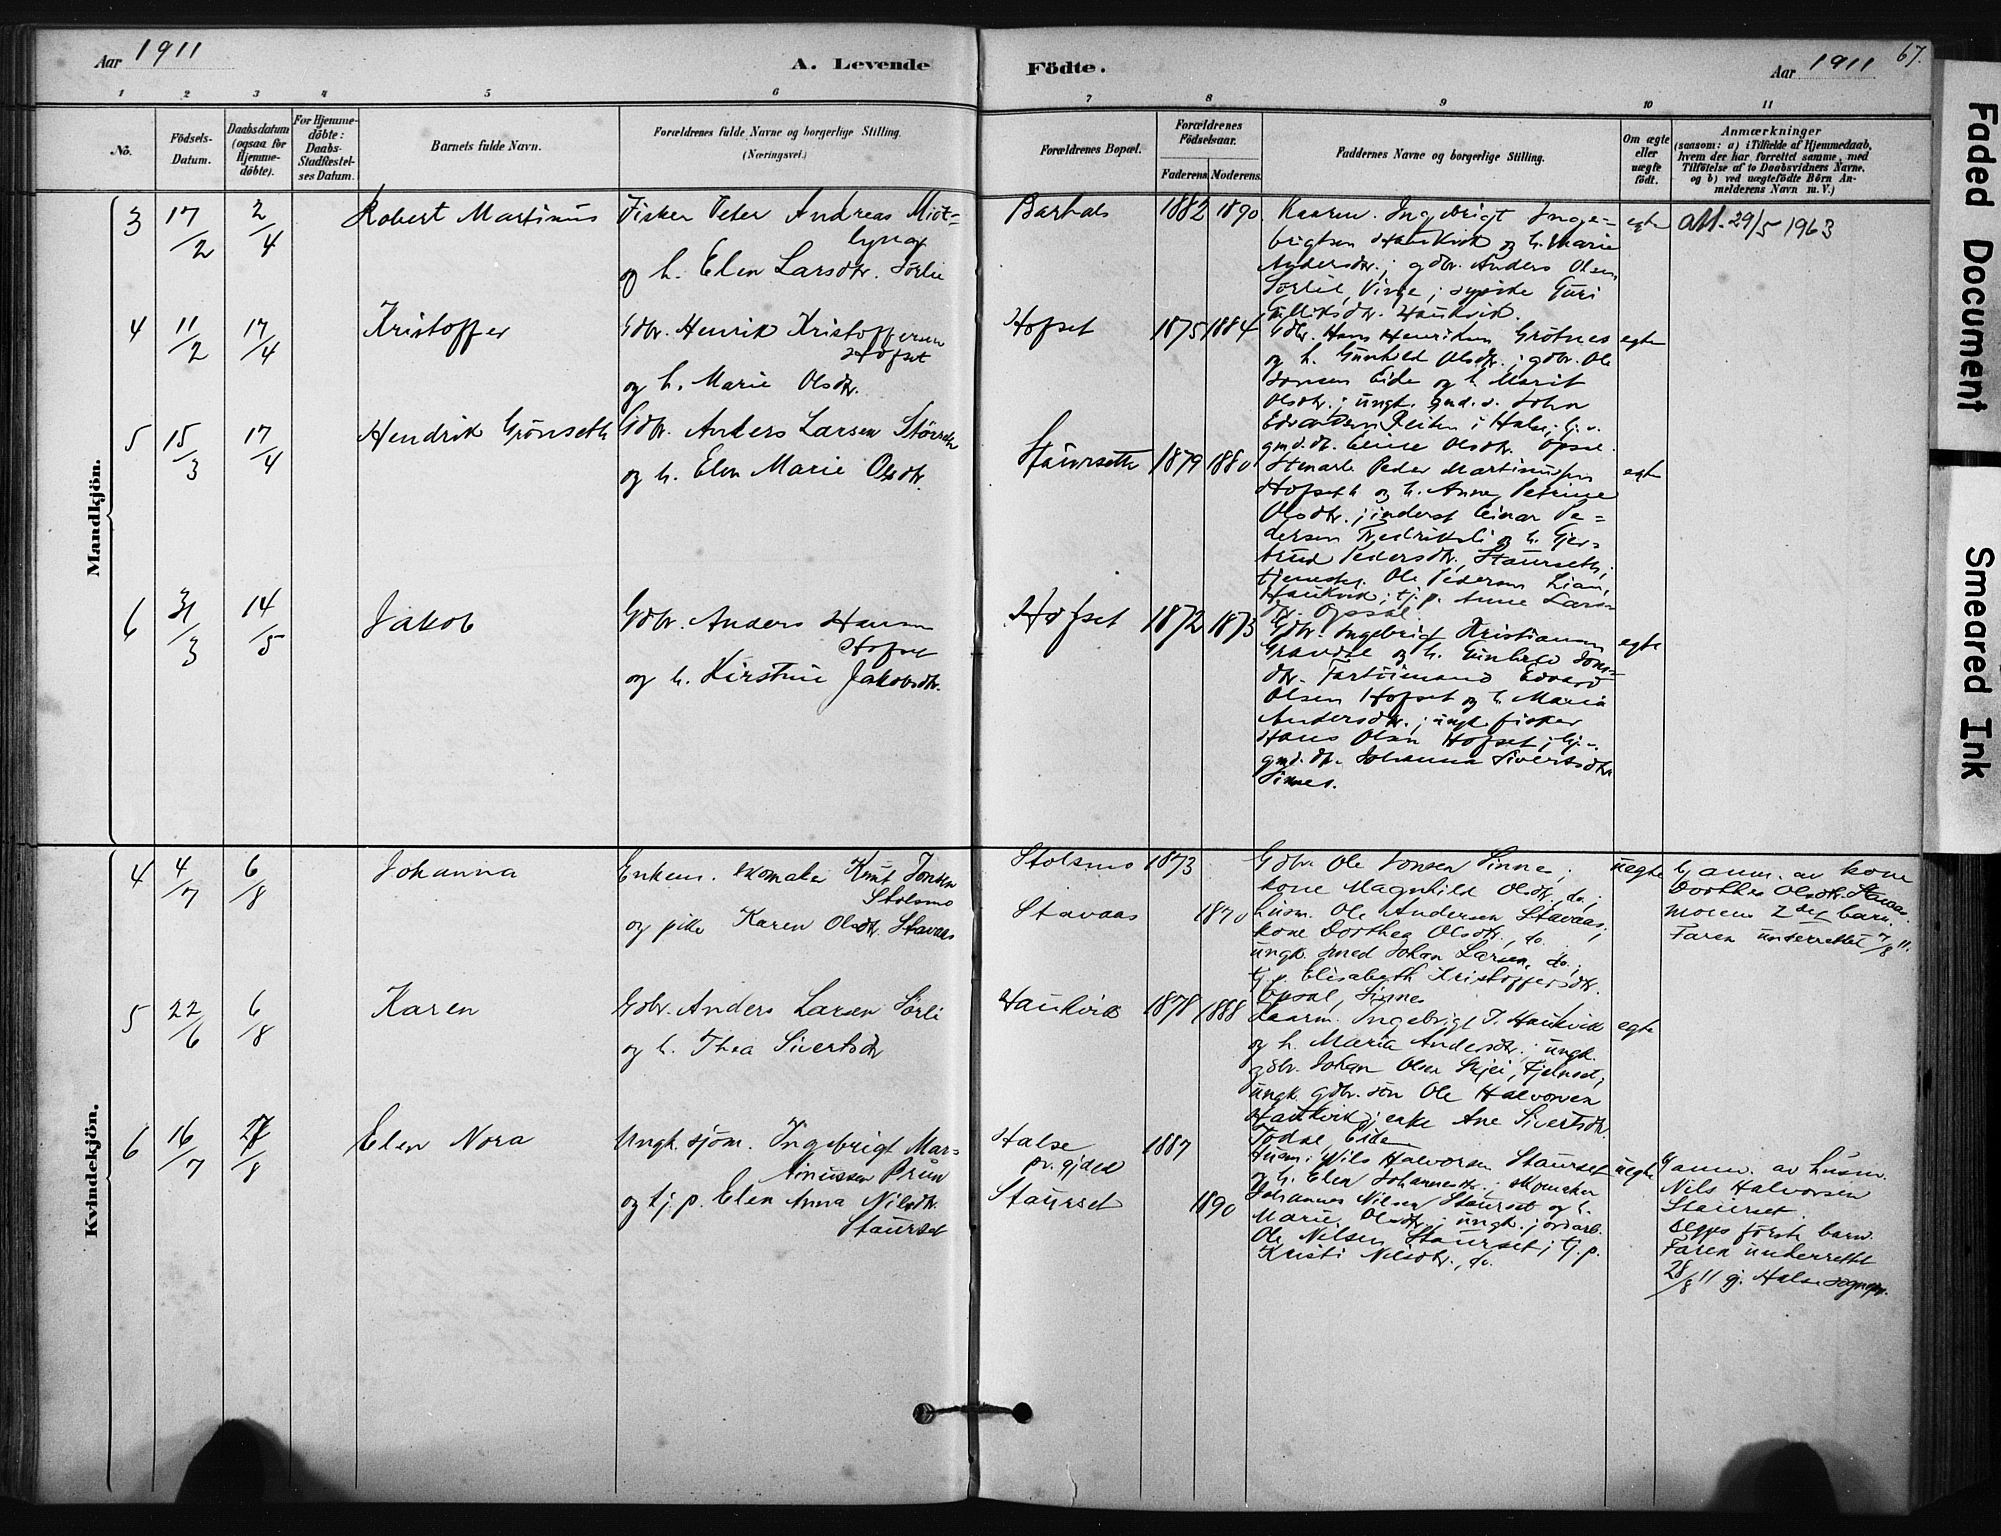 Aar 1911
A. Levende
Födte.
Aar 1911
67.
1 2 3 4 5 6 7 8 9 10 11
No.
Födsels-
Datum.
Daabsdatum
(ogsaa for
Hjemme-
döbte).
For Hjemme-
döbte:
Daabs-
Stadfæstel-
ses Datum.
Barnets fulde Navn.
Forældrenes fulde Navne og borgerlige Stilling.
(Næringsvei.)
Forældrenes Bopæl.
Forældrenes
Födselsaar.
Faderens Moderens.
Faddernes Navne og borgerlige Stilling.
Om ægte
eller
uægte
födt.
Anmærkninger
(saasom: a) i Tilfælde af Hjemmedaab,
hvem der har forrettet samme, med
Tilföielse af to Daabsvidners Navne,
og b) ved uægtefödte Börn An-
melderens Navn m. V.)
Mandkjön.
3
17/2
2/4
Robert Martinus
Fisker Peter Andreas Miot-
lyng
og h. Elen Larsdtr. Sörlie
Barhals
1882 1890
Kaarm. Ingebrigt Inge-
brigtsen Haukvik og h. Marie
Andersdtr.; gdbr. Anders Olsen
Sörlie, Vinje; sypike Guri
Haukvik.
egte
att. 29/5 1963
4
11/2
17/4
Kristoffer
Gdbr. Henrik Kristoffersen
Hofset
og h. Marie Olsdtr.
Hofset
1875 1884
Gdbr. Hans Henriksen Grötnes
og h. Gunhild Olsdtr.; gdbr. Ole
Jonsen Eide og h. Marit
Olsdtr.; ungk. gmd. s. John
Reiten i Halse;
gmd. dtr. Eline Olsdtr. Opsal.
egte
5
15/3
17/4
Hendrik Grönseth
Gdbr. Anders Larsen
og h. Elen Marie Olsdtr.
Staurseth
1879 1880
Peder Martinussen
Hofseth og h. Anne Petrine
Olsdtr.; inderst Einar Pe-
dersen Fredriksli og h. Gjer-
trud Pedersdtr. Staurseth;
Ole Pedersen Lian,
Haukvik; tj. p. Anne Lars-
dtr. Opsal.
egte
6
31/3
14/5
Jakob
Gdbr. Anders Hansen
Hofset
og h. Kirstine Jakobsdtr.
Hofset
1872 1873
Gdbr. Ingebrigt Kristiansen
Gravdal og h. Gunhild Jons-
dtr. Fartöimand Edvard
Olsen Hofset og h. Maria
Andersdtr.; ungk. fisker
Hans Olsen Hofset;
gmd. dtr. Johanna Sivertsdtr.
Sinnes.
egte
Kvindekjön.
4
4/7
6/8
Johanna
Enkem. skomaker Knut Jonsen
Stolsmo
og pike Karen Olsdtr. Stavaas
Stolsmo
Stavaas
1873
1870
Gdbr. Ole Jonsen Sinnes;
kone Magnhild Olsdtr., do.;
husm. Ole Andersen Stavaas,
kone Dorthea Olsdtr., do.
ungk. smed Johan Larsen, do.;
tj. p. Elisabeth Kristoffersdtr.
Opsal, Sinnes
uegte
Gj. anm. av kone
Dorthea Olsdtr. Stavaas.
Morens 2det barn.
Faren underrettet 7/8 11.
5
22/6
6/8
Karen
Gdbr. Anders Larsen Sörli
og h. Thea Sivertsdtr
Haukvik
1878 1888
Kaarm. Ingebrigt I. Haukvik
og h. Maria Andersdtr.; ungk.
gdbr. Johan Olsen Skjei, Fjelnset;
ungk. gdbr. sön Ole Halvorsen
Haukvik; enke Ane Sivertsdtr.
Todal, Eide
egte
6
16/7
27/8
Elen Nora
Ungk. sjöm. Ingebrigt Mar-
tinussen Brun
og tj. p. Elen Anna Nilsdtr.
Staurset
Halse
pr.gjeld
Staurset
1887
1890
Husm. Nils Halvorsen Staurset
og h. Elen Johannesdtr.; skomaker
Johannes Nilsen Staurset og h.
Marie Olsdtr.; ungk. jordarb.
Ole Nilsen Staurset; tj. p.
Kristi Nilsdtr., do.
uegte
Gj anm. av husm.
Nils Halvorsen
Staurset.
Begges förste barn.
Faren underrettet
28/8 11 gj. Halse sognepr.
Faded Document
Smeared Ink